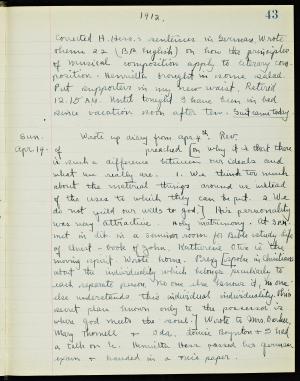 1912.
43
Corrected H. Hess's sentences in German. Wrote
theme 22 (B.A. English) on how the principles
of musical composition apply to literary com-
position. Henrietta brought in some salad.
Put supporters in my new waist. Retired
12.15 A.M. Until tonight I have been in bed
since vacation soon after ten.
Sun.
Apr. 14.
Wrote up diary from apr. 4th. Rev.
of preached on why it is that there
is such a difference between our ideals and
what we really are. 1. We think too much
about the material things around us instead
of the uses to which they can be put. 2 We
do not yield our wills to God. His personality
was very attractive. Holy matrimony. At 3 P.M.
met in lit in a seminar room for Bible study life
of Christ - book of John. Katharine is the
moving spirit. Wrote home. Prexy spoke in
about the individuality which belongs similarly to
each separate person. No one else knows it, no one
else understands this individual individuality. This
secret place known only to the possessor is
where God meets the soul. Wrote to Mrs.
Mary Thornell + Ida. Louise Boynton + I had
a talk on &c. Henrietta Hess passed her German
exam + handed in a this paper.